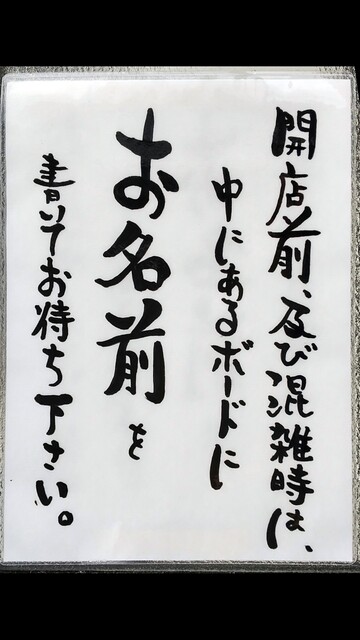 開店前、及び混雑時は、
中にあるボードに
お名前を
書いてお待ち下さい。